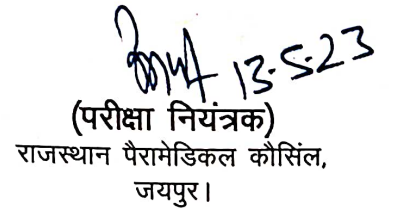 13-5-23
(परीक्षा नियंत्रक)
राजस्थान पैरामेडिकल कौसिंल,
जयपुर।